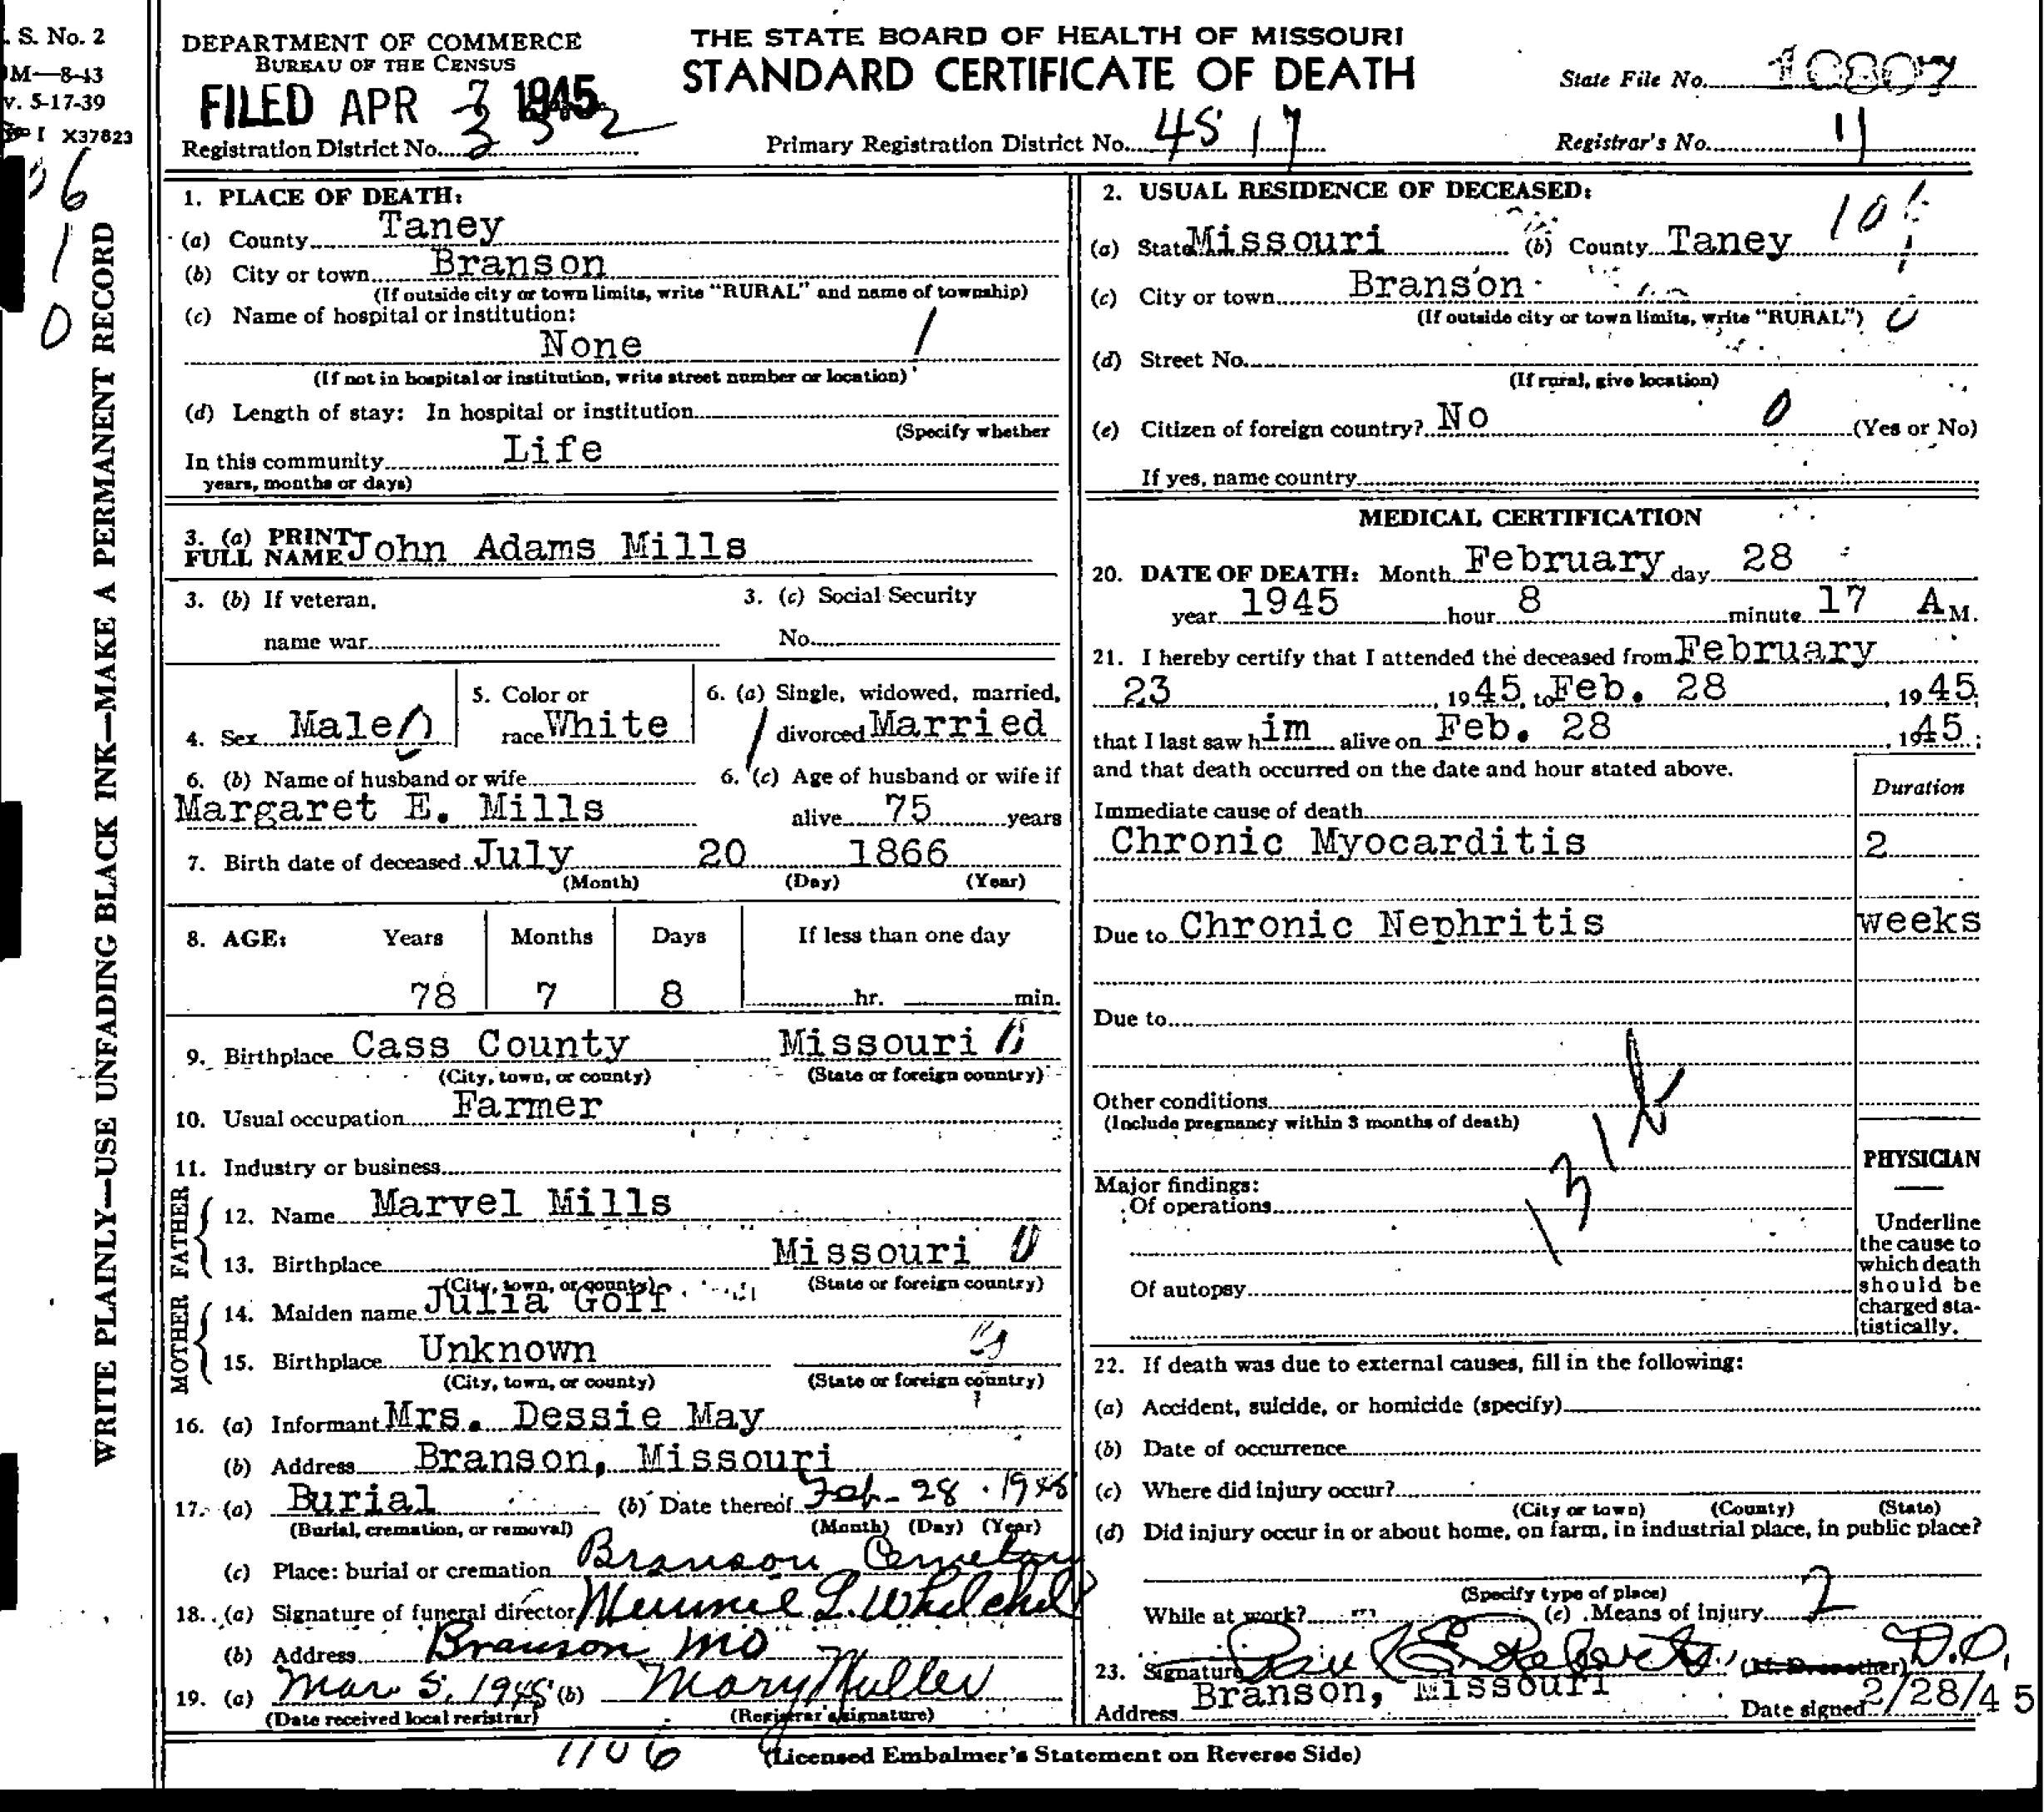 . S. No. 2
M—8-43
v. 5-17-39
I X37823
WRITE PLAINLY—USE UNFADING BLACK INK—MAKE A PERMANENT RECORD
DEPARTMENT OF COMMERCE
BUREAU OF THE CENSUS
FILED APR 1945
Registration District No.
THE STATE BOARD OF HEALTH OF MISSOURI
STANDARD CERTIFICATE OF DEATH
Primary Registration District No. 4517
State File No. 10807
Registrar's No. 11
1. PLACE OF DEATH:
(a) County Taney
(b) City or town Branson
(If outside city or town limits, write "RURAL" and name of township)
(c) Name of hospital or institution:
None
(If not in hospital or institution, write street number or location)
(d) Length of stay: In hospital or institution
(Specify whether
In this community Life
years, months or days)
2. USUAL RESIDENCE OF DECEASED:
(a) State Missouri (b) County Taney
(c) City or town Branson
(If outside city or town limits, write "RURAL")
(d) Street No.
(If rural, give location)
(e) Citizen of foreign country? No 0 (Yes or No)
If yes, name country
3. (a) PRINT FULL NAME John Adams Mills
3. (b) If veteran, 3. (c) Social Security
name war No.
4. Sex Male 5. Color or race White 6. (a) Single, widowed, married, divorced Married
6. (b) Name of husband or wife 6. (c) Age of husband or wife if
Margaret E. Mills alive 75 years
7. Birth date of deceased July 20 1866
(Month) (Day) (Year)
8. AGE: Years Months Days If less than one day
78 7 8 hr. min.
9. Birthplace Cass County Missouri
(City, town, or county) (State or foreign country)
10. Usual occupation Farmer
11. Industry or business
FATHER
12. Name Marvel Mills
13. Birthplace Missouri 0
(City, town, or county) (State or foreign country)
MOTHER
14. Maiden name Julia Goff
15. Birthplace Unknown
(City, town, or county) (State or foreign country)
16. (a) Informant Mrs. Dessie May
(b) Address Branson, Missouri
17. (a) Burial (b) Date thereof Feb - 28 . 1945
(Burial, cremation, or removal) (Month) (Day) (Year)
(c) Place: burial or cremation Branson Cemetary
18. (a) Signature of funeral director L. Whelchel
(b) Address Branson Mo
19. (a) Mar 5, 1945 (b) Mary Muller
(Date received local registrar) (Registrar's signature)
MEDICAL CERTIFICATION
20. DATE OF DEATH: Month February day 28
year 1945 hour 8 minute 17 A M.
21. I hereby certify that I attended the deceased from February
23, 1945, to Feb. 28, 1945;
that I last saw him alive on Feb. 28, 1945;
and that death occurred on the date and hour stated above.
Duration
Immediate cause of death
Chronic Myocarditis 2
Due to Chronic Nephritis weeks
Due to
Other conditions
(Include pregnancy within 3 months of death)
Major findings:
Of operations
Of autopsy
PHYSICIAN
Underline
the cause to
which death
should be
charged sta-
tistically.
22. If death was due to external causes, fill in the following:
(a) Accident, suicide, or homicide (specify)
(b) Date of occurrence
(c) Where did injury occur?
(City or town) (County) (State)
(d) Did injury occur in or about home, on farm, in industrial place, in public place?
(Specify type of place)
While at work? (e) Means of injury 2
23. Signature Roberts D.O.
Address Branson, Missouri Date signed 2/28/45
1106
(Licensed Embalmer's Statement on Reverse Side)